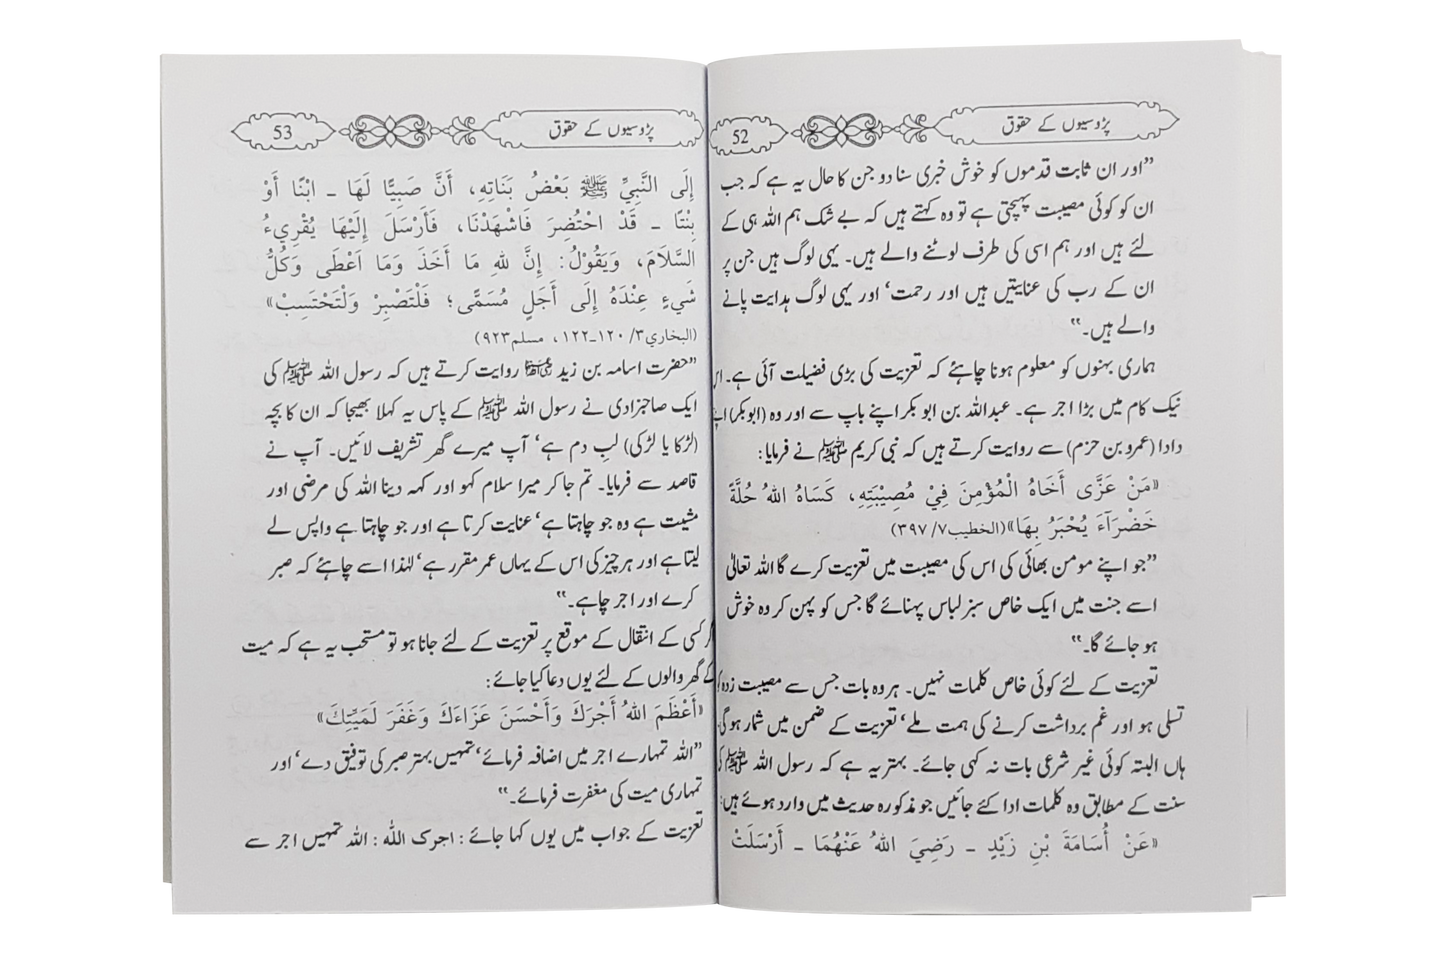 پڑوسیوں کے حقوق
52
”اور ان ثابت قدموں کو خوش خبری سنا دو جن کا حال یہ ہے کہ جب
ان کو کوئی مصیبت پہنچتی ہے تو وہ کہتے ہیں کہ بے شک ہم اللہ ہی کے
لئے ہیں اور ہم اسی کی طرف لوٹنے والے ہیں۔ یہی لوگ ہیں جن پر
ان کے رب کی عنایتیں ہیں اور رحمت، اور یہی لوگ ہدایت پانے
والے ہیں۔“
ہماری بہنوں کو معلوم ہونا چاہئے کہ تعزیت کی بڑی فضیلت آئی ہے۔ اس
نیک کام میں بڑا اجر ہے۔ عبداللہ بن ابو بکر اپنے باپ سے اور وہ (ابوبکر) اپنے
دادا (عمرو بن حزم) سے روایت کرتے ہیں کہ نبی کریم ﷺ نے فرمایا:
«مَنْ عَزَّى أَخَاهُ الْمُؤْمِنَ فِيْ مُصِيْبَتِهِ، كَسَاهُ اللهُ حُلَّةً
خَضْرَآءَ يُحْبَرُ بِهَا» (الخطيب ٧/ ٣٩٧)
”جو اپنے مومن بھائی کی اس کی مصیبت میں تعزیت کرے گا اللہ تعالیٰ
اسے جنت میں ایک خاص سبز لباس پہنائے گا جس کو پہن کر وہ خوش
ہو جائے گا۔“
تعزیت کے لئے کوئی خاص کلمات نہیں۔ ہر وہ بات جس سے مصیبت زدہ کو
تسلی ہو اور غم برداشت کرنے کی ہمت ملے، تعزیت کے ضمن میں شمار ہوگی۔
ہاں البتہ کوئی غیر شرعی بات نہ کہی جائے۔ بہتر یہ ہے کہ رسول اللہ ﷺ کی
سنت کے مطابق وہ کلمات ادا کئے جائیں جو مذکورہ حدیث میں وارد ہوئے ہیں:
«عَنْ أُسَامَةَ بْنِ زَيْدٍ ـ رَضِيَ اللهُ عَنْهُمَا ـ أَرْسَلَتْ
پڑوسیوں کے حقوق
53
إِلَى النَّبِيِّ ﷺ بَعْضُ بَنَاتِهِ، أَنَّ صَبِيًّا لَهَا ـ ابْنًا أَوْ
بِنْتًا ـ قَدْ احْتُضِرَ فَاشْهَدْنَا، فَأَرْسَلَ إِلَيْهَا يُقْرِيءُ
السَّلَامَ، وَيَقُوْلُ: إِنَّ للهِ مَا أَخَذَ وَمَا اَعْطَى وَكُلُّ
شَيْءٍ عِنْدَهُ إِلَى أَجَلٍ مُسَمًّى؛ فَلْتَصْبِرْ وَلْتَحْتَسِبْ»
(البخاري ٣/ ١٢٠ـ١٢٢، مسلم ٩٢٣)
”حضرت اسامہ بن زید رضی اللہ عنہ روایت کرتے ہیں کہ رسول اللہ ﷺ کی
ایک صاحبزادی نے رسول اللہ ﷺ کے پاس یہ کہلا بھیجا کہ ان کا بچہ
(لڑکا یا لڑکی) لب دم ہے، آپ میرے گھر تشریف لائیں۔ آپ نے
قاصد سے فرمایا۔ تم جا کر میرا سلام کہو اور کہہ دینا اللہ کی مرضی اور
مشیت ہے وہ جو چاہتا ہے، عنایت کرتا ہے اور جو چاہتا ہے واپس لے
لیتا ہے اور ہر چیز کی اس کے یہاں عمر مقرر ہے، لہٰذا اسے چاہئے کہ صبر
کرے اور اجر چاہے۔“
گر کسی کے انتقال کے موقع پر تعزیت کے لئے جانا ہو تو مستحب یہ ہے کہ میت
کے گھر والوں کے لئے یوں دعا کیا جائے:
«أَعْظَمَ اللهُ أَجْرَكَ وَأَحْسَنَ عَزَاءَكَ وَغَفَرَ لَمَيِّتِكَ»
”اللہ تمہارے اجر میں اضافہ فرمائے، تمہیں بہتر صبر کی توفیق دے، اور
تمہاری میت کی مغفرت فرمائے۔“
تعزیت کے جواب میں یوں کہا جائے: اجرک اللہ: اللہ تمہیں اجر سے